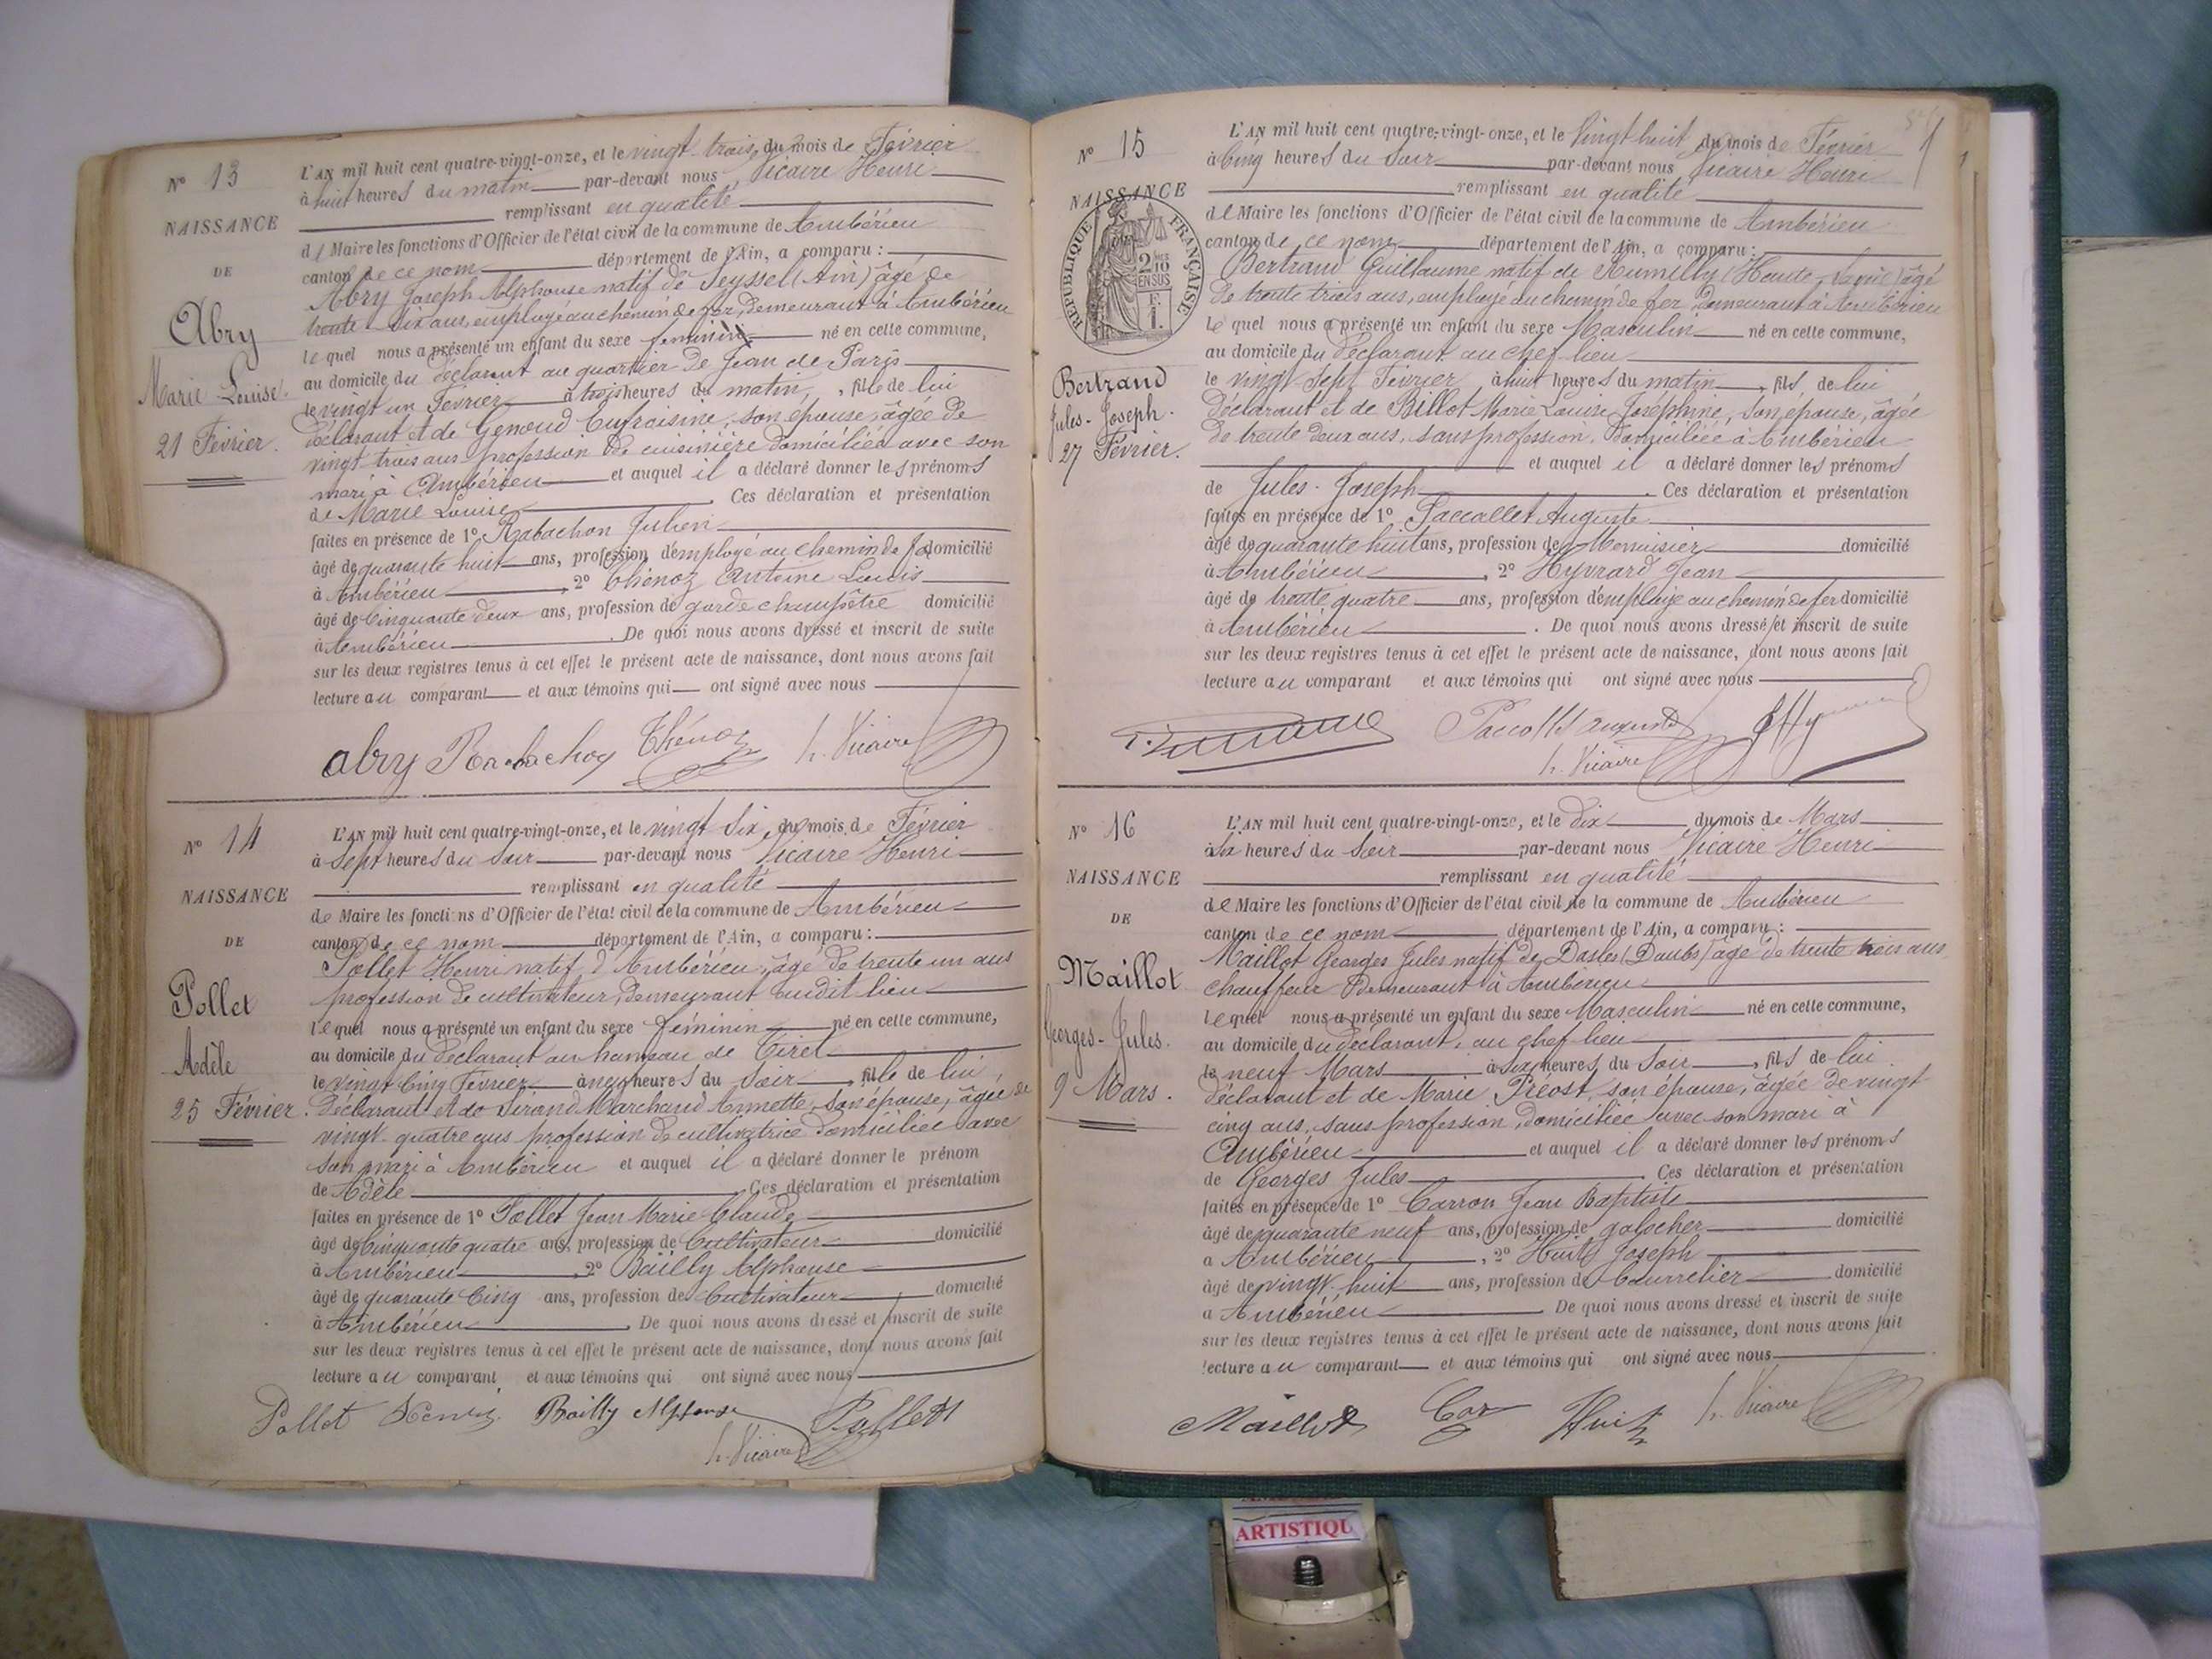 N° 13
NAISSANCE
DE
Abry
Marie Louise.
21 Février.
L'AN mil huit cent quatre-vingt-onze, et le vingt trois du mois de Février
à huit heures du matin par-devant nous Vicaire Henri
remplissant en qualité
de Maire les fonctions d'Officier de l'état civil de la commune de Ambérieu
canton de ce nom département de l'Ain, a comparu :
Abry Joseph Alphonse natif de Seyssel (Ain) âgé de
trente six ans, employé au chemin de fer, demeurant à Ambérieu
lequel nous a présenté un enfant du sexe féminin né en cette commune,
au domicile du déclarant au quartier de Jean de Paris
le vingt un Février à trois heures du matin, fille de lui
déclarant et de Genoud Eufroisine, son épouse, âgée de
vingt trois ans profession de cuisinière domiciliée avec son
mari à Ambérieu et auquel il a déclaré donner les prénoms
de Marie Louise Ces déclaration et présentation
faites en présence de 1° Rabachon Julien
âgé de quarante huit ans, profession d'employé au chemin de fer domicilié
à Ambérieu, 2° Thénoz Antoine Louis
âgé de Cinquante deux ans, profession de garde champêtre domicilié
à Ambérieu. De quoi nous avons dressé et inscrit de suite
sur les deux registres tenus à cet effet le présent acte de naissance, dont nous avons fait
lecture au comparant et aux témoins qui ont signé avec nous
abry Rabachon Thénoz h. Vicaire
N° 14
NAISSANCE
DE
Pollet
Adèle
25 Février.
L'AN mil huit cent quatre-vingt-onze, et le vingt six du mois de Février
à Sept heures du Soir par-devant nous Vicaire Henri
remplissant en qualité
de Maire les fonctions d'Officier de l'état civil de la commune de Ambérieu
canton de ce nom département de l'Ain, a comparu :
Pollet Henri natif d'Ambérieu, âgé de trente un ans
profession de cultivateur, demeurant audit lieu
lequel nous a présenté un enfant du sexe féminin né en cette commune,
au domicile du déclarant au hameau de Tiret
le vingt Cinq Février à neuf heures du Soir, fille de lui,
déclarant et de Sirand Marchand Annette, son épouse, âgée de
vingt-quatre ans profession de cultivatrice domiciliée avec
son mari à Ambérieu et auquel il a déclaré donner le prénom
de Adèle Ces déclaration et présentation
faites en présence de 1° Pollet Jean Marie Claude
âgé de Cinquante quatre ans, profession de Cultivateur domicilié
à Ambérieu, 2° Bailly Alphonse
âgé de quarante Cinq ans, profession de Cultivateur domicilié
à Ambérieu. De quoi nous avons dressé et inscrit de suite
sur les deux registres tenus à cet effet le présent acte de naissance, dont nous avons fait
lecture au comparant et aux témoins qui ont signé avec nous
Pollet Henri Bailly Alphonse Pollet
h. Vicaire
N° 15
NAISSANCE
RÉPUBLIQUE FRANÇAISE
2/10 EN SUS
Bertrand
Jules-Joseph.
27 Février.
L'AN mil huit cent quatre-vingt-onze, et le Vingt huit du mois de Février
à Cinq heures du Soir par-devant nous Vicaire Henri
remplissant en qualité
de Maire les fonctions d'Officier de l'état civil de la commune de Ambérieu
canton de ce nom département de l'Ain, a comparu :
Bertrand Guillaume natif de Rumilly (Haute-Savoie) âgé
de trente trois ans, employé au chemin de fer, demeurant à Ambérieu
lequel nous a présenté un enfant du sexe Masculin né en cette commune,
au domicile du déclarant au chef lieu
le vingt-sept Février à huit heures du matin, fils de lui
déclarant et de Billot Marie Louise Joséphine, Son épouse, âgée
de trente deux ans, sans profession, domiciliée à Ambérieu
et auquel il a déclaré donner les prénoms
de Jules-Joseph. Ces déclaration et présentation
faites en présence de 1° Paccallet Auguste
âgé de quarante huit ans, profession de Menuisier domicilié
à Ambérieu, 2° Hyvrard Jean
âgé de trente quatre ans, profession d'employé au chemin de fer domicilié
à Ambérieu. De quoi nous avons dressé et inscrit de suite
sur les deux registres tenus à cet effet le présent acte de naissance, dont nous avons fait
lecture au comparant et aux témoins qui ont signé avec nous
h. Vicaire
N° 16
NAISSANCE
DE
Maillot
Georges-Jules.
9 Mars.
L'AN mil huit cent quatre-vingt-onze, et le dix du mois de Mars
à Six heures du Soir par-devant nous Vicaire Henri
remplissant en qualité
de Maire les fonctions d'Officier de l'état civil de la commune de Ambérieu
canton de ce nom département de l'Ain, a comparu :
Maillot Georges Jules natif de Dasles (Doubs) âgé de trente trois ans
chauffeur demeurant à Ambérieu
lequel nous a présenté un enfant du sexe Masculin né en cette commune,
au domicile du déclarant, au chef lieu
le neuf Mars à Six heures du Soir, fils de lui
déclarant et de Marie Préost, son épouse, âgée de vingt
cinq ans, sans profession, domiciliée avec son mari à
Ambérieu et auquel il a déclaré donner les prénoms
de Georges Jules. Ces déclaration et présentation
faites en présence de 1° Carron Jean Baptiste
âgé de quarante neuf ans, profession de galocher domicilié
à Ambérieu, 2° Huits Joseph
âgé de vingt-huit ans, profession de Bourrelier domicilié
à Ambérieu De quoi nous avons dressé et inscrit de suite
sur les deux registres tenus à cet effet le présent acte de naissance, dont nous avons fait
lecture au comparant et aux témoins qui ont signé avec nous
Maillot h. Vicaire
ARTISTIQU